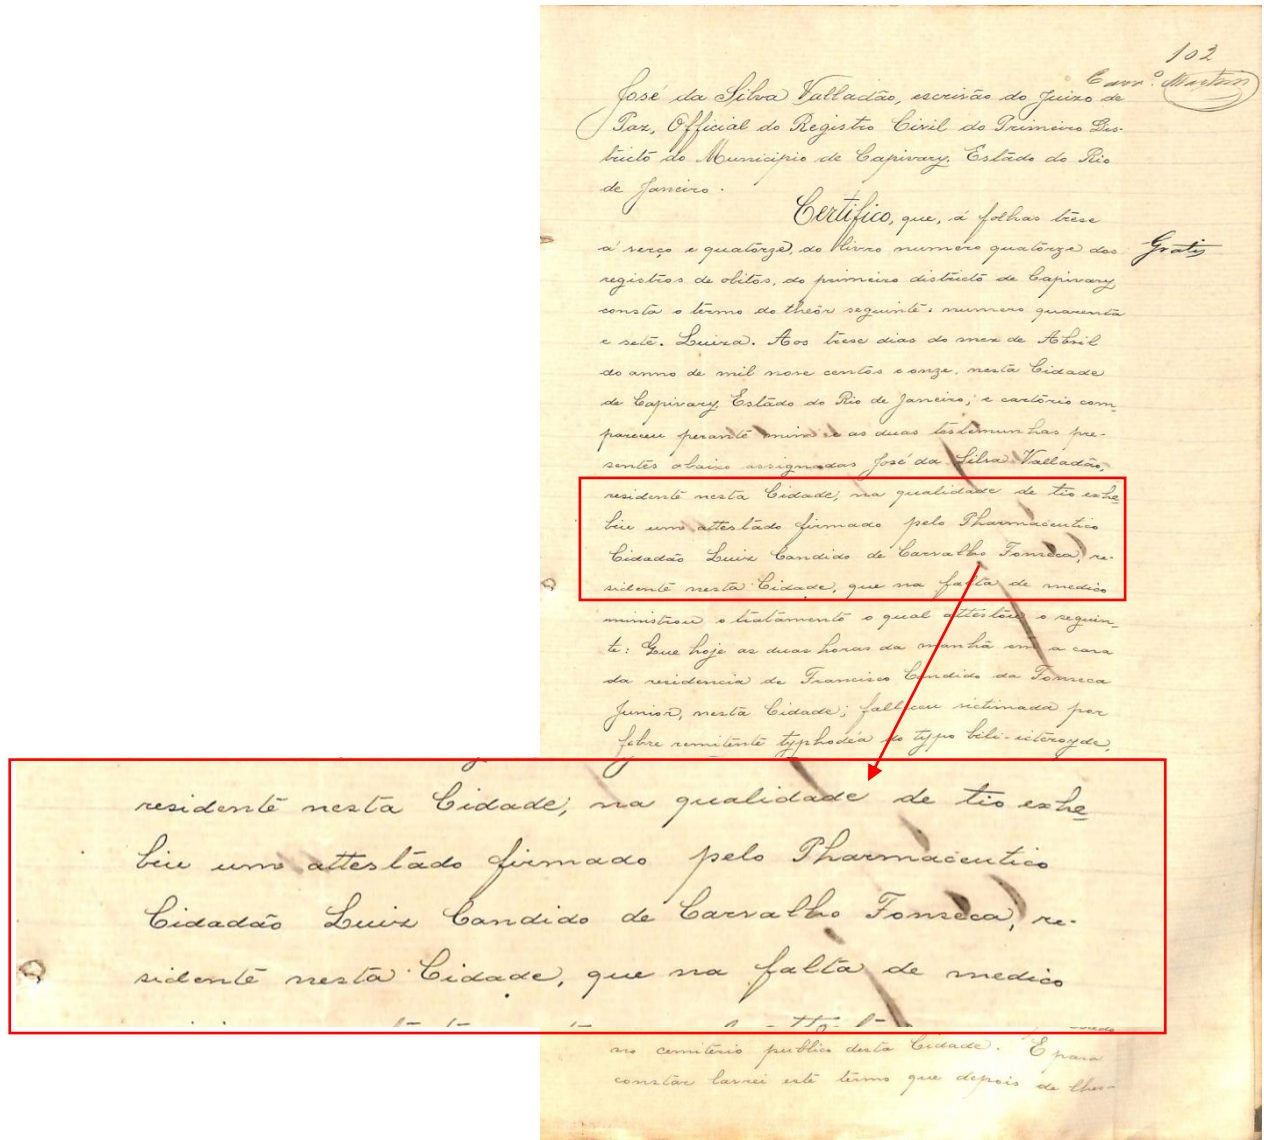 102
José da Silva Valladão, escrivão do Juizo de
Paz, Official do Registro Civil do Primeiro Dis-
tricto do Municipio de Capivary, Estado do Rio
de Janeiro.
Certifico, que, á folhas trese
á verço e quatorze, do livro numero quatorze dos
Gratis
registros de obitos, do primeiro districto de Capivary
consta o termo do theôr seguinte: numero quarenta
e sete. Luiza. Aos trese dias do mez de Abril
do anno de mil nove centos e onze, nesta Cidade
de Capivary, Estado do Rio de Janeiro; e cartório com-
pareceu perante mim e as duas testemunhas pre-
sentes abaixo assignadas José da Silva Valladão,
residente nesta Cidade, na qualidade de tio exhe-
biu um attestado firmado pelo Pharmaceutico
Cidadão Luiz Candido de Carvalho Fonseca, re-
sidente nesta Cidade, que na falta de medico
ministrou o tratamento o qual attestou o seguin-
te: Que hoje as duas horas da manhã em a casa
da residencia de Francisco Candido da Fonseca
Junior, nesta Cidade; falleceu victimada por
febre remitente typhodéa do typo bili-icteroyde,
residente nesta Cidade, na qualidade de tio exhe-
biu um attestado firmado pelo Pharmaceutico
Cidadão Luiz Candido de Carvalho Fonseca, re-
sidente nesta Cidade, que na falta de medico
no cemiterio publico desta Cidade. E para
constar lavrei este termo que depois de lhes